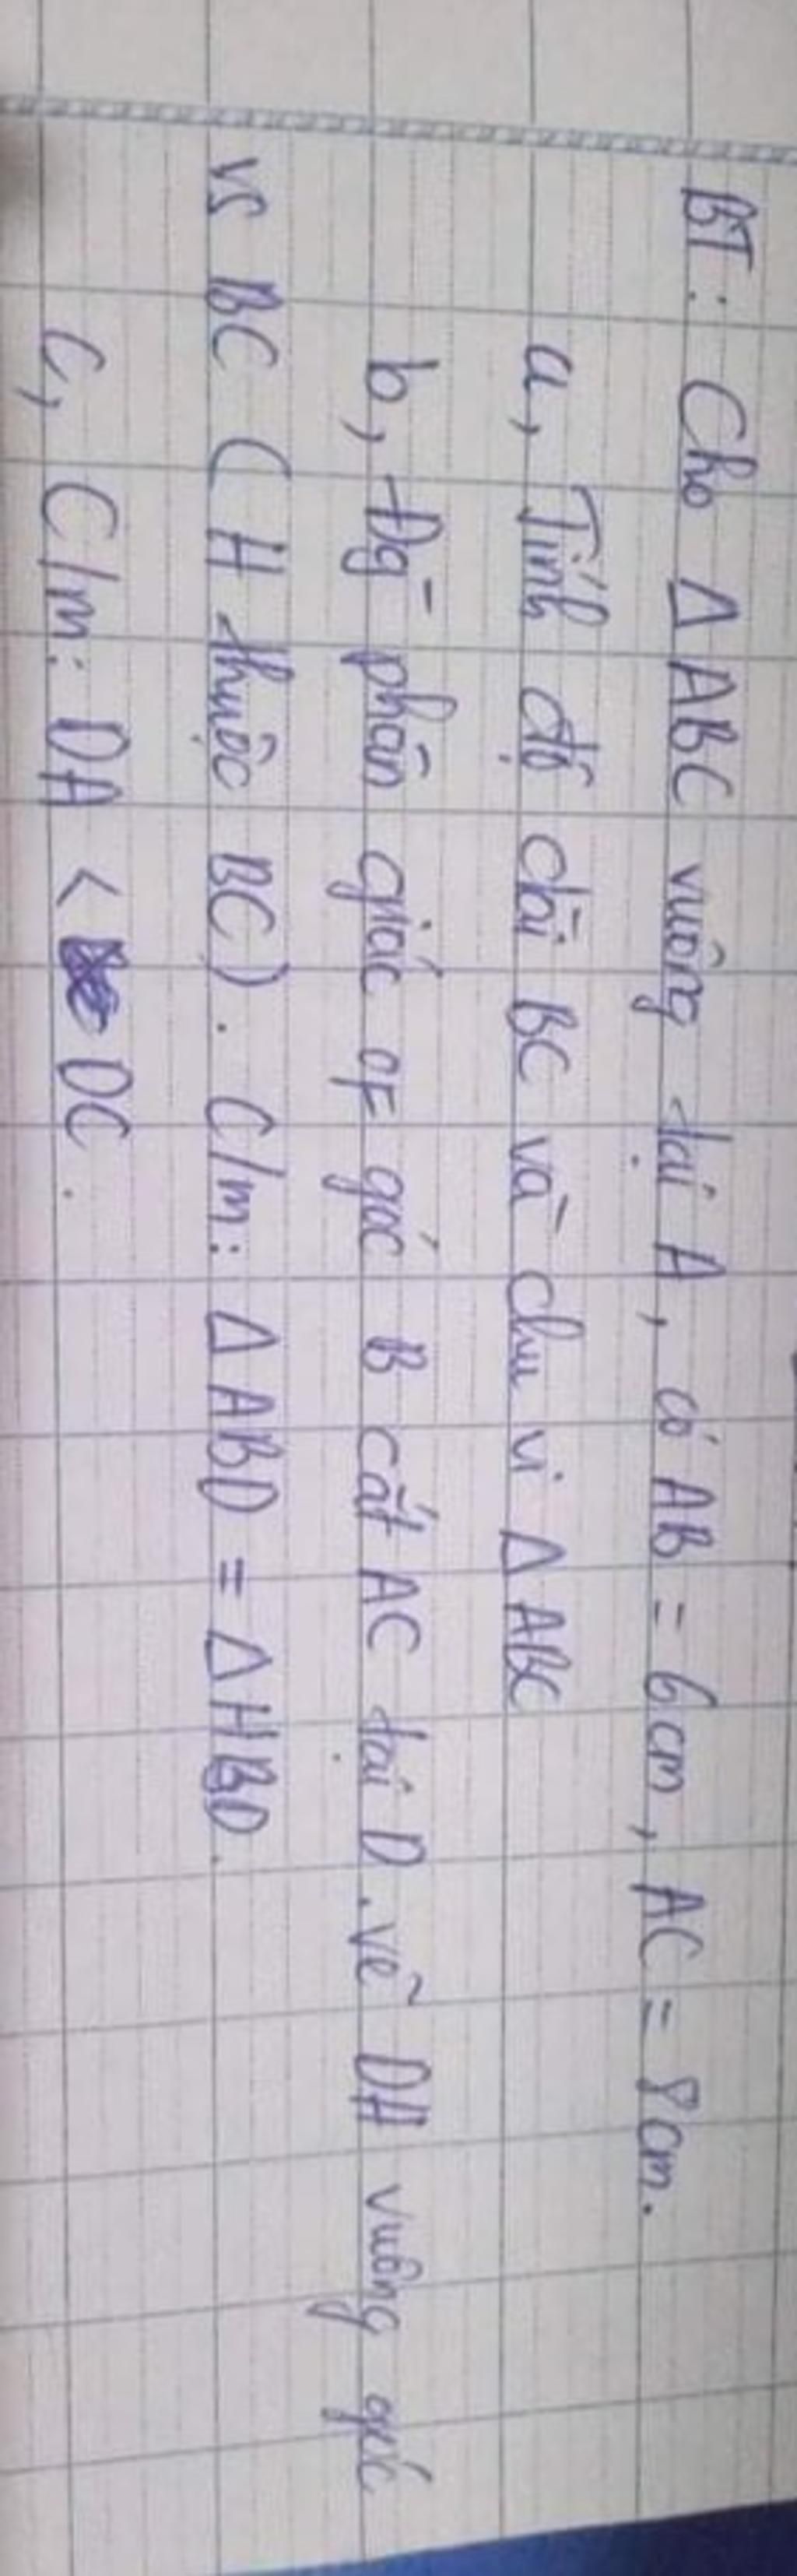 BT: Cho Δ ABC vuông tại A, có AB = 6cm, AC = 8cm.
a, Tính độ dài BC và chu vi Δ ABC
b, Đg̀ phân giác of góc B cắt AC tại D. vẽ DH vuông góc
vs BC (H thuộc BC). C/m: Δ ABD = Δ HBD.
c, C/m: DA < DC.